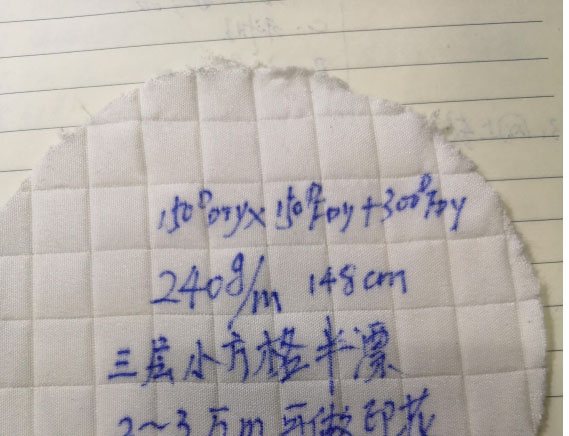 150D DTY×150D FDY+300D FDY
240g/m 148cm
三层小方格半漂
2~3万m可做印花